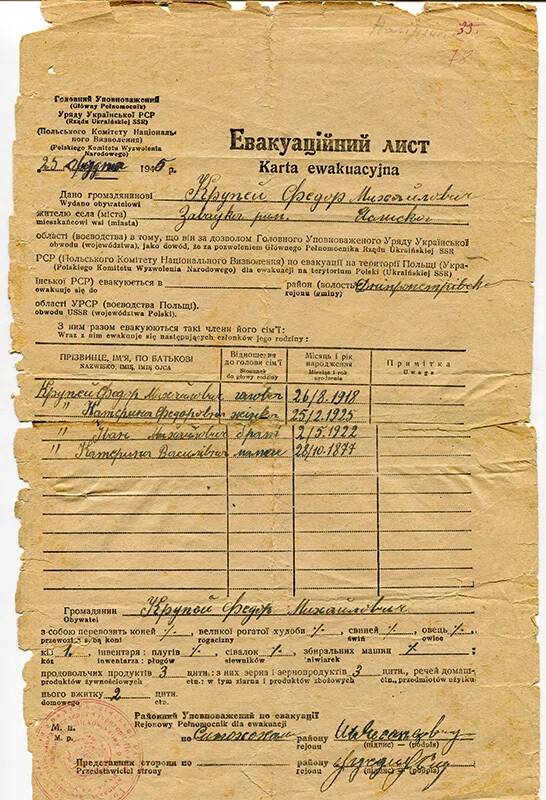 35
78
Головний Уповноважений
(Główny Pełnomocnik)
Уряду Української РСР
(Rządu Ukraińskiej SSR)
(Польського Комітету Національ-
ного Визволення)
(Polskiego Komitetu Wyzwolenia
Narodowego)
25 грудня 1945 р.
Евакуаційний лист
Karta ewakuacyjna
Дано громадянинові Крупей Федор Михайлович
Wydano obywatelowi
жителю села (міста)
mieszkańcowi wsi (miasta)
області (воєводства) в тому, що він за дозволом Головного Уповноваженого Уряду Української
obwodu (województwa), jako dowód, że za pozwoleniem Głównego Pełnomocnika Rządu Ukraińskiej SSR
РСР (Польського Комітету Національного Визволення) по евакуації на території Польщі (Укра-
(Polskiego Komitetu Wyzwolenia Narodowego) dla ewakuacji na terytorium Polski (Ukraińskiej SSR)
їнської РСР) евакуюється в район (волость)
ewakuuje się do rejonu (gminy)
області УРСР (воєводства Польщі).
obwodu USSR (województwa Polski).
З ним разом евакуюються такі члени його сім'ї:
Wraz z nim ewakuuje się następujących członków jego rodziny:
ПРІЗВИЩЕ, ІМ'Я, ПО БАТЬКОВІ Відношення до голови сім'ї Місяць і рік народження Примітка
NAZWISKO, IMIĘ, IMIĘ OJCA Stosunek do głowy rodziny Miesiąc i rok urodzenia Uwaga
Крупей Федор Михайлович голова 26/8.1918
" Катерина Федоровна жінка 25/2.1925
" Іван Михайлович брат 2/5.1922
" Катерина Василівна мати 28/10.1877
Громадянин Крупей Федор Михайлович
Obywatel
з собою перевозить коней -/-, великої рогатої худоби -/-, свиней -/-, овець -/-,
przewozi z sobą koni rogacizny świń owiec
кіз 1, інвентаря: плугів -/-, сівалок -/-, збиральних машин -/-
kóz inwentarza: pługów siewników żniwiarek
продовольчих продуктів 3 цнтн.: з них зерна і зернопродуктів 3 цнтн., речей домаш-
produktów żywnościowych ctn.: w tym ziarna i produktów zbożowych ctn., przedmiotów użytku
нього вжитку 2 цнтн.
domowego ctn.
Районний Уповноважений по евакуації
Rejonowy Pełnomocnik dla ewakuacji
М. п.
M. p.
по району
po rejonu (підпис) — (podpis)
Представник сторони по району
Przedstawiciel strony rejonu (підпис) — (podpis)